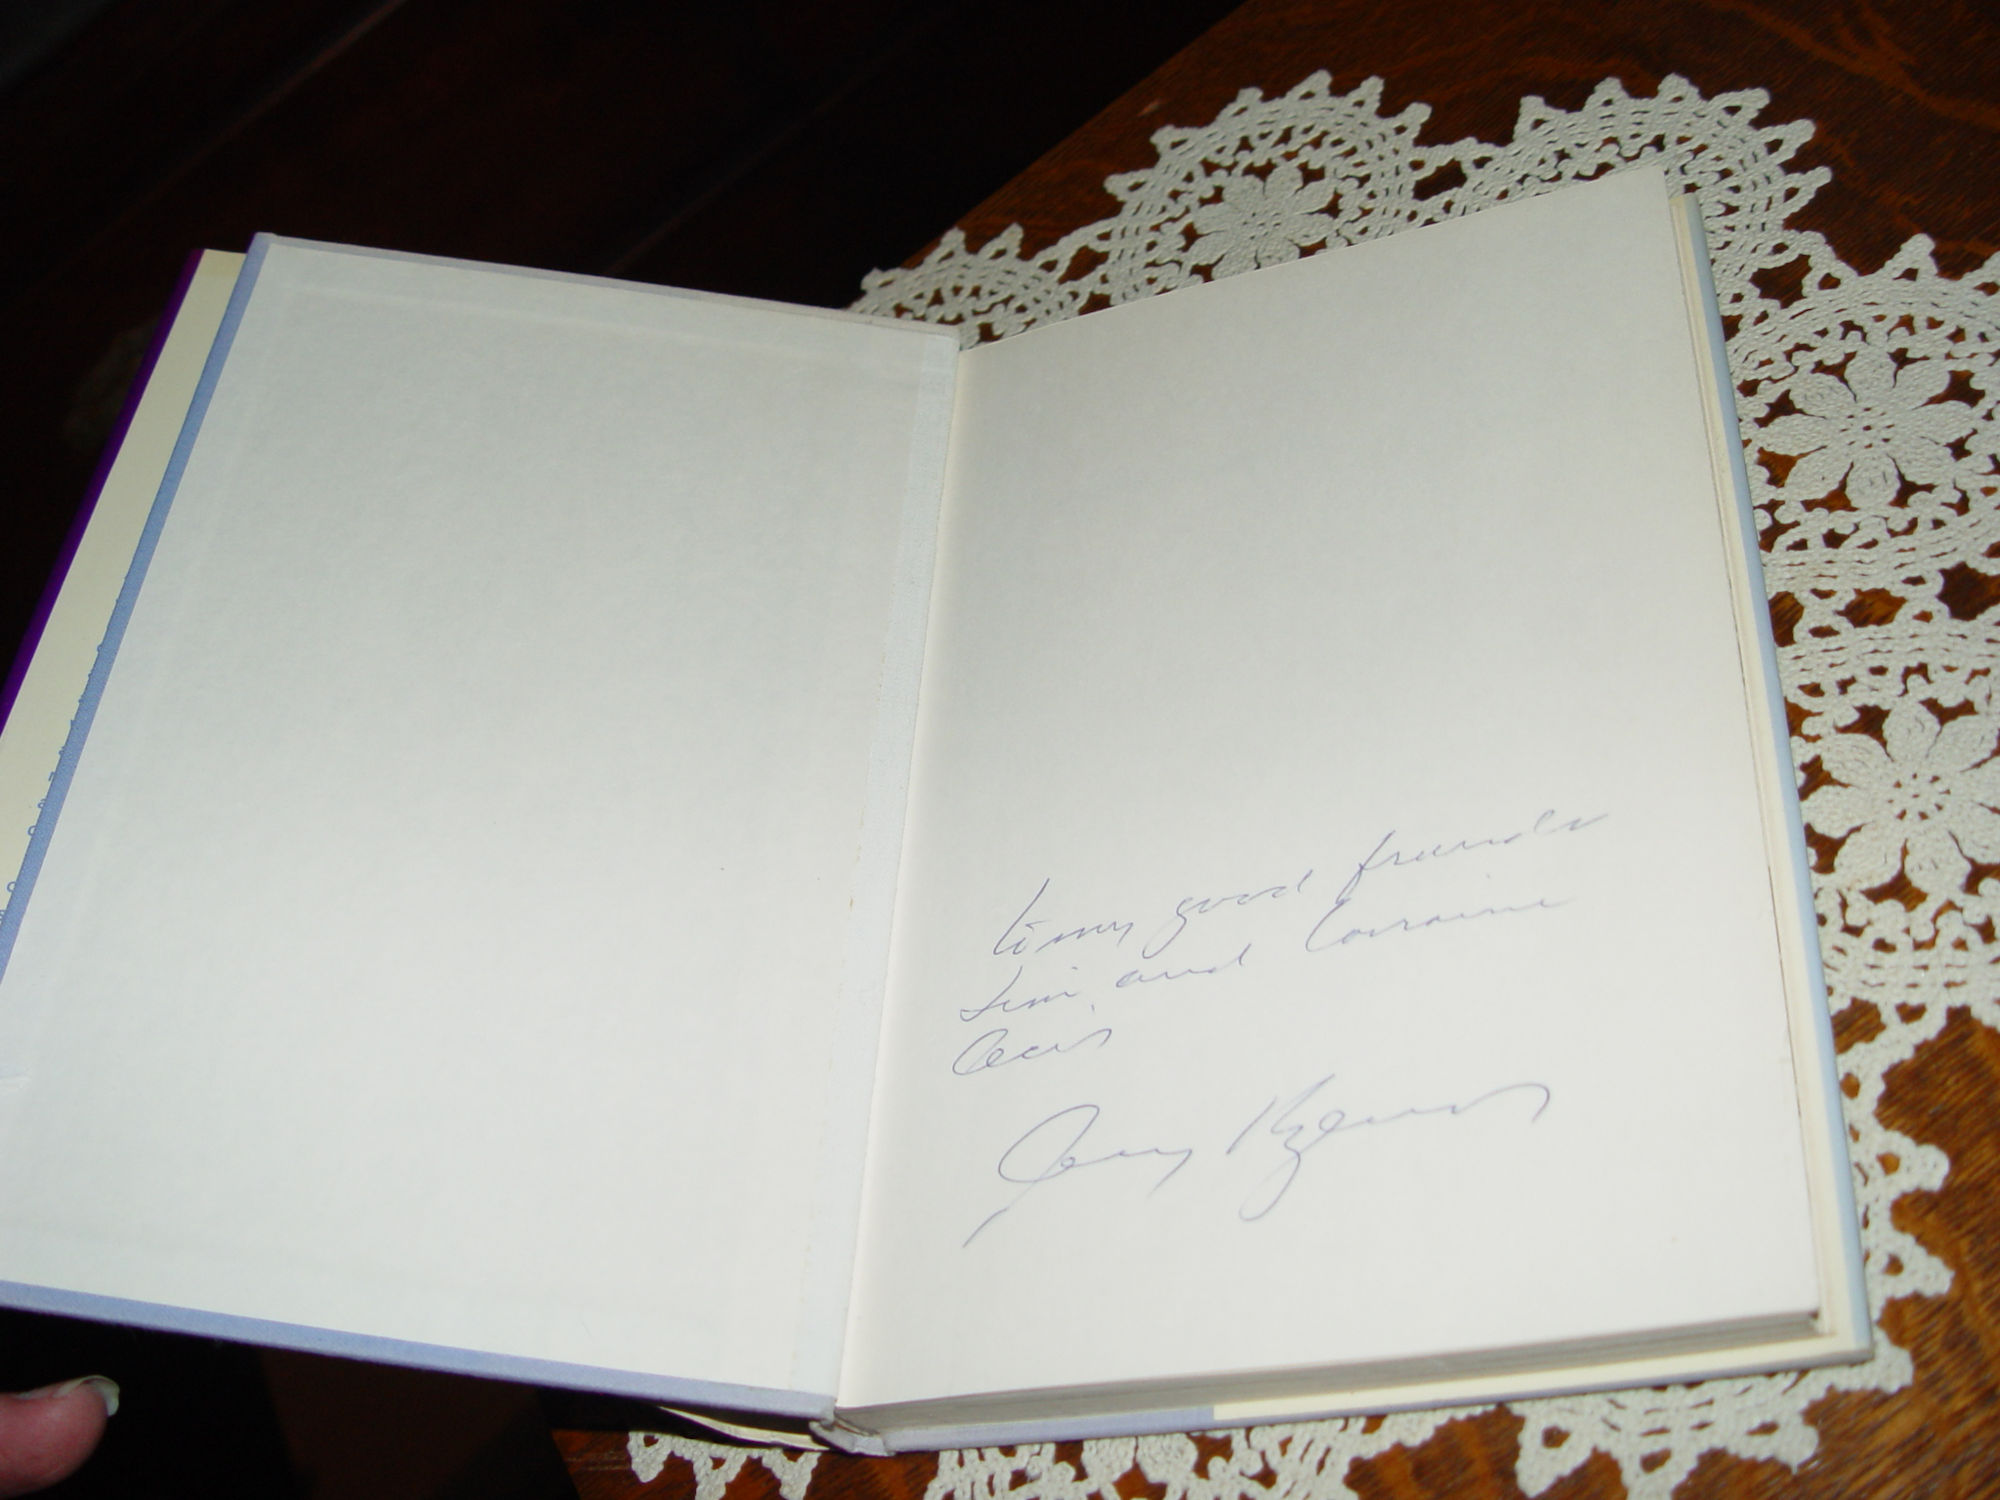 to my good friends
Jim and Lorraine
Jerry